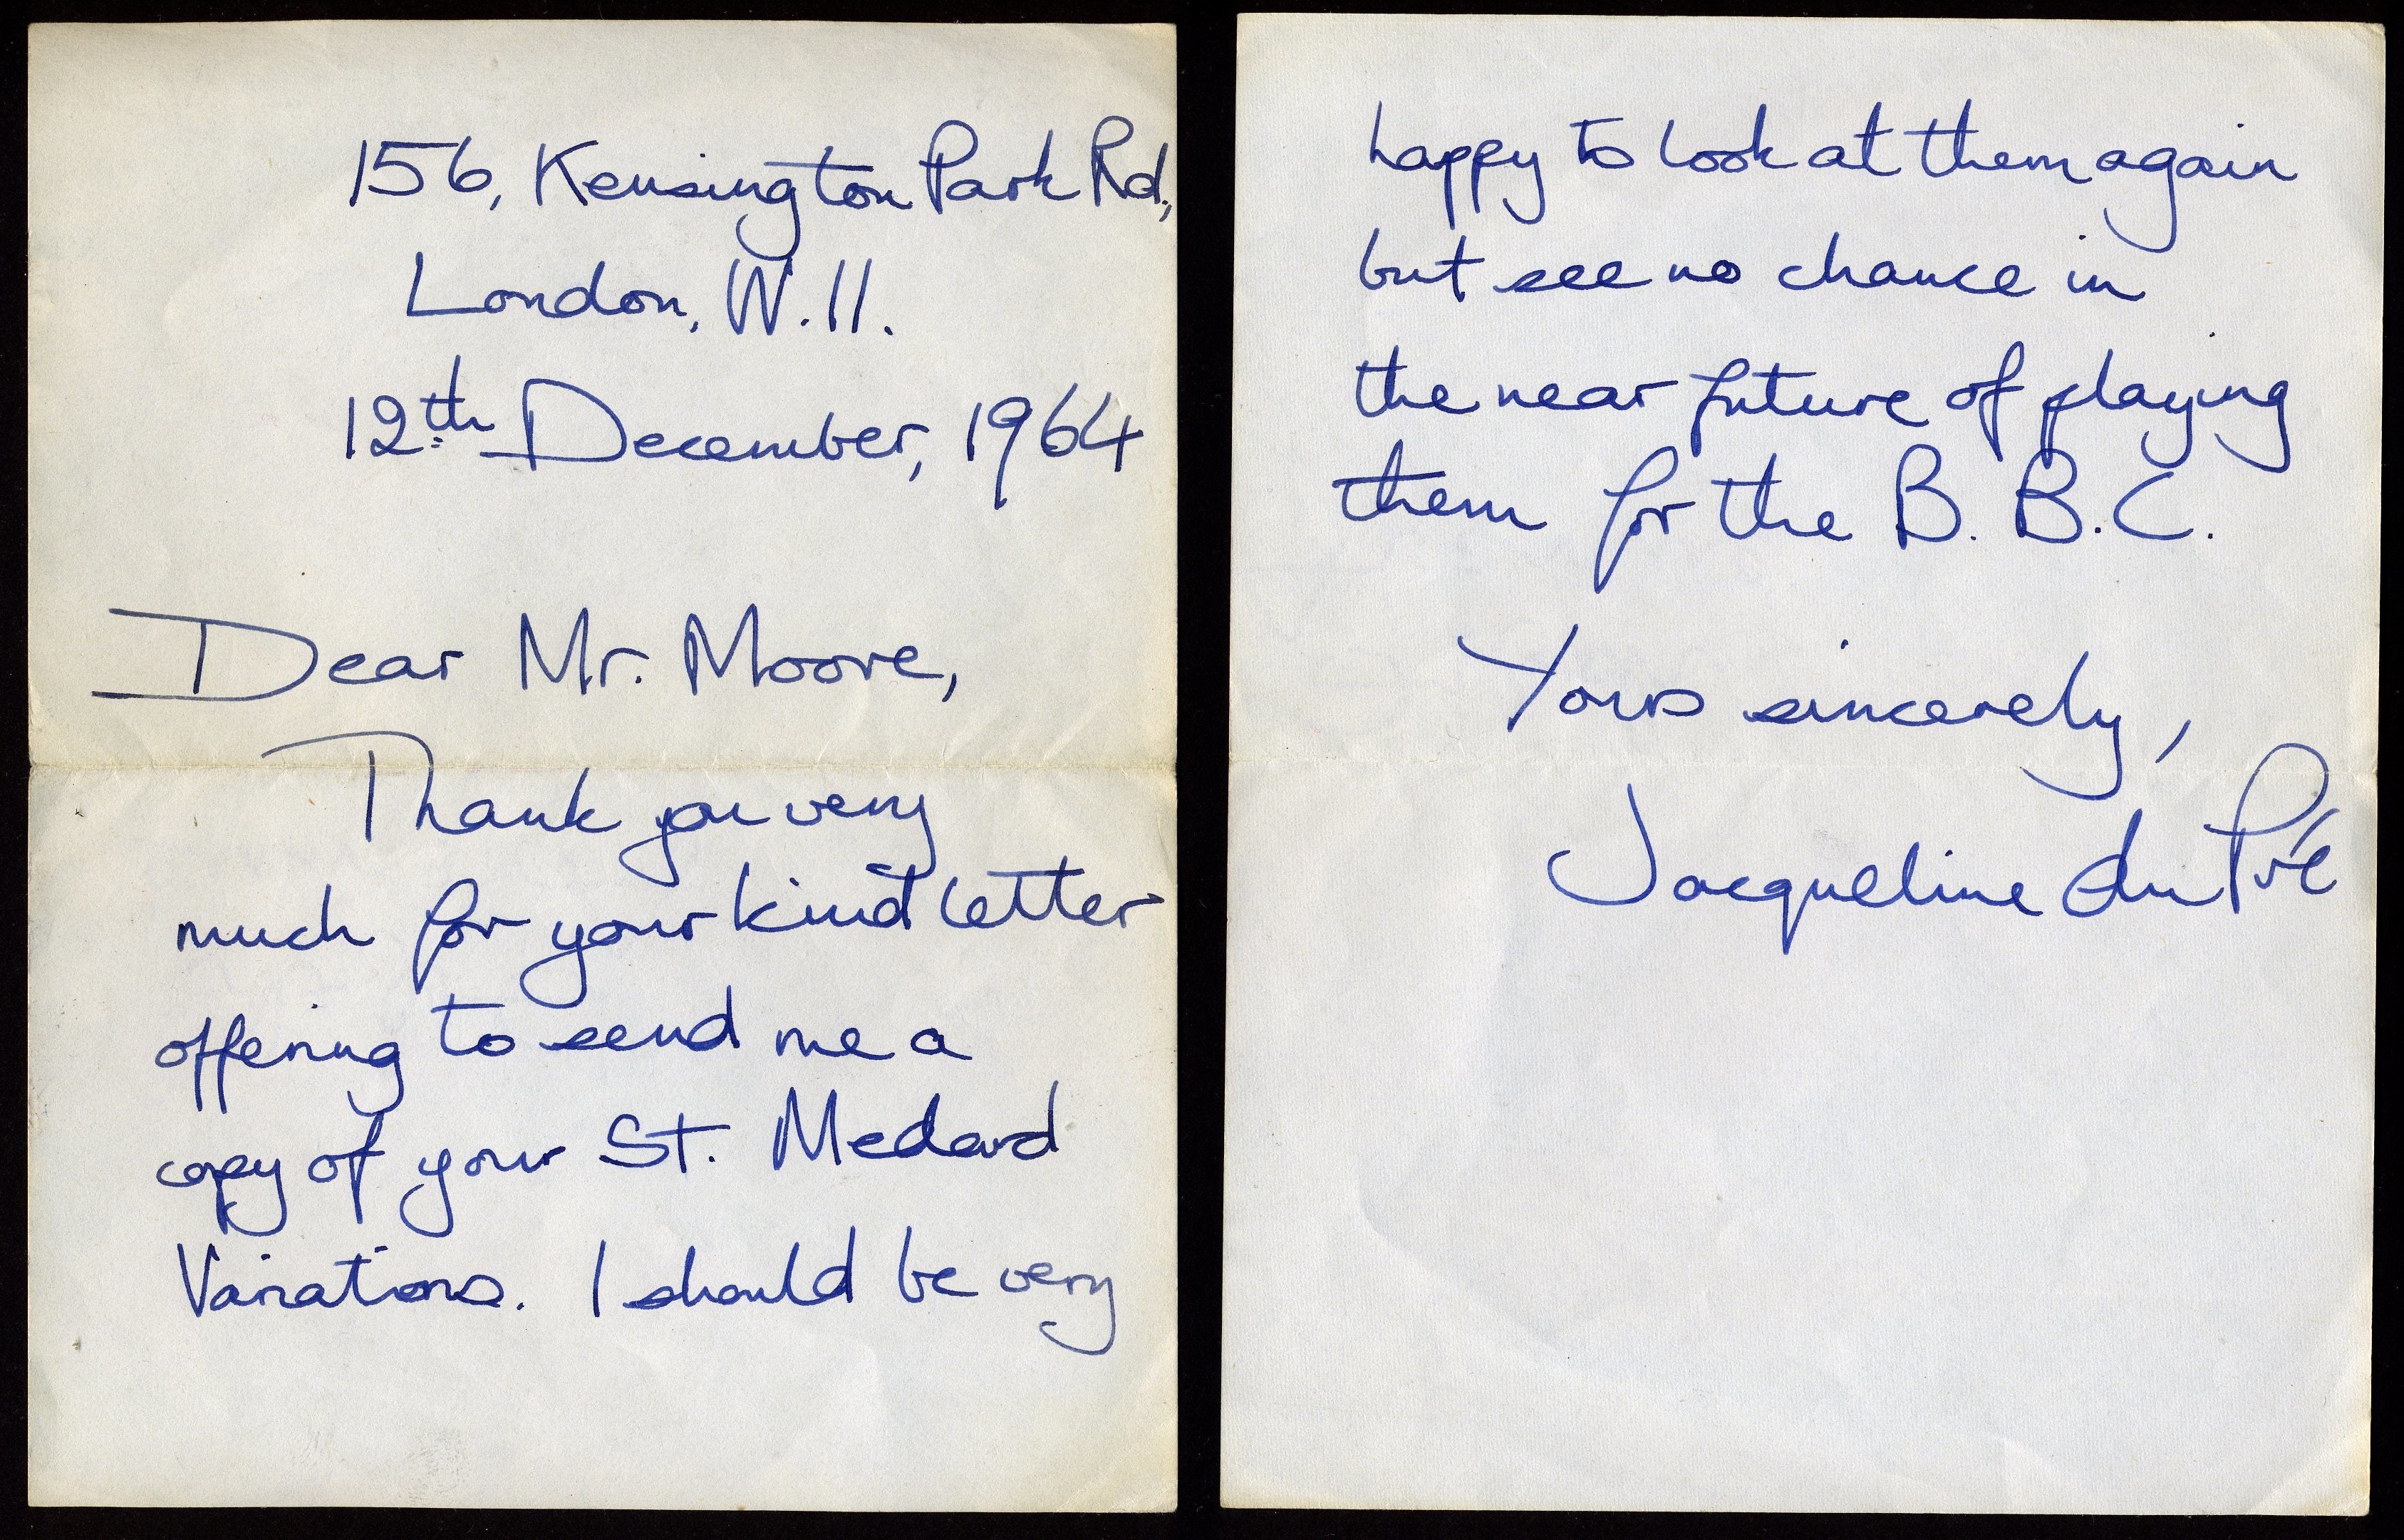 156, Kensington Park Rd.,
London, W.11.
12th December, 1964
Dear Mr. Moore,
Thank you very
much for your kind letter
offering to send me a
copy of your St. Medard
Variations. I should be very
happy to look at them again
but see no chance in
the near future of playing
them for the B.B.C.
Yours sincerely,
Jacqueline du Pré